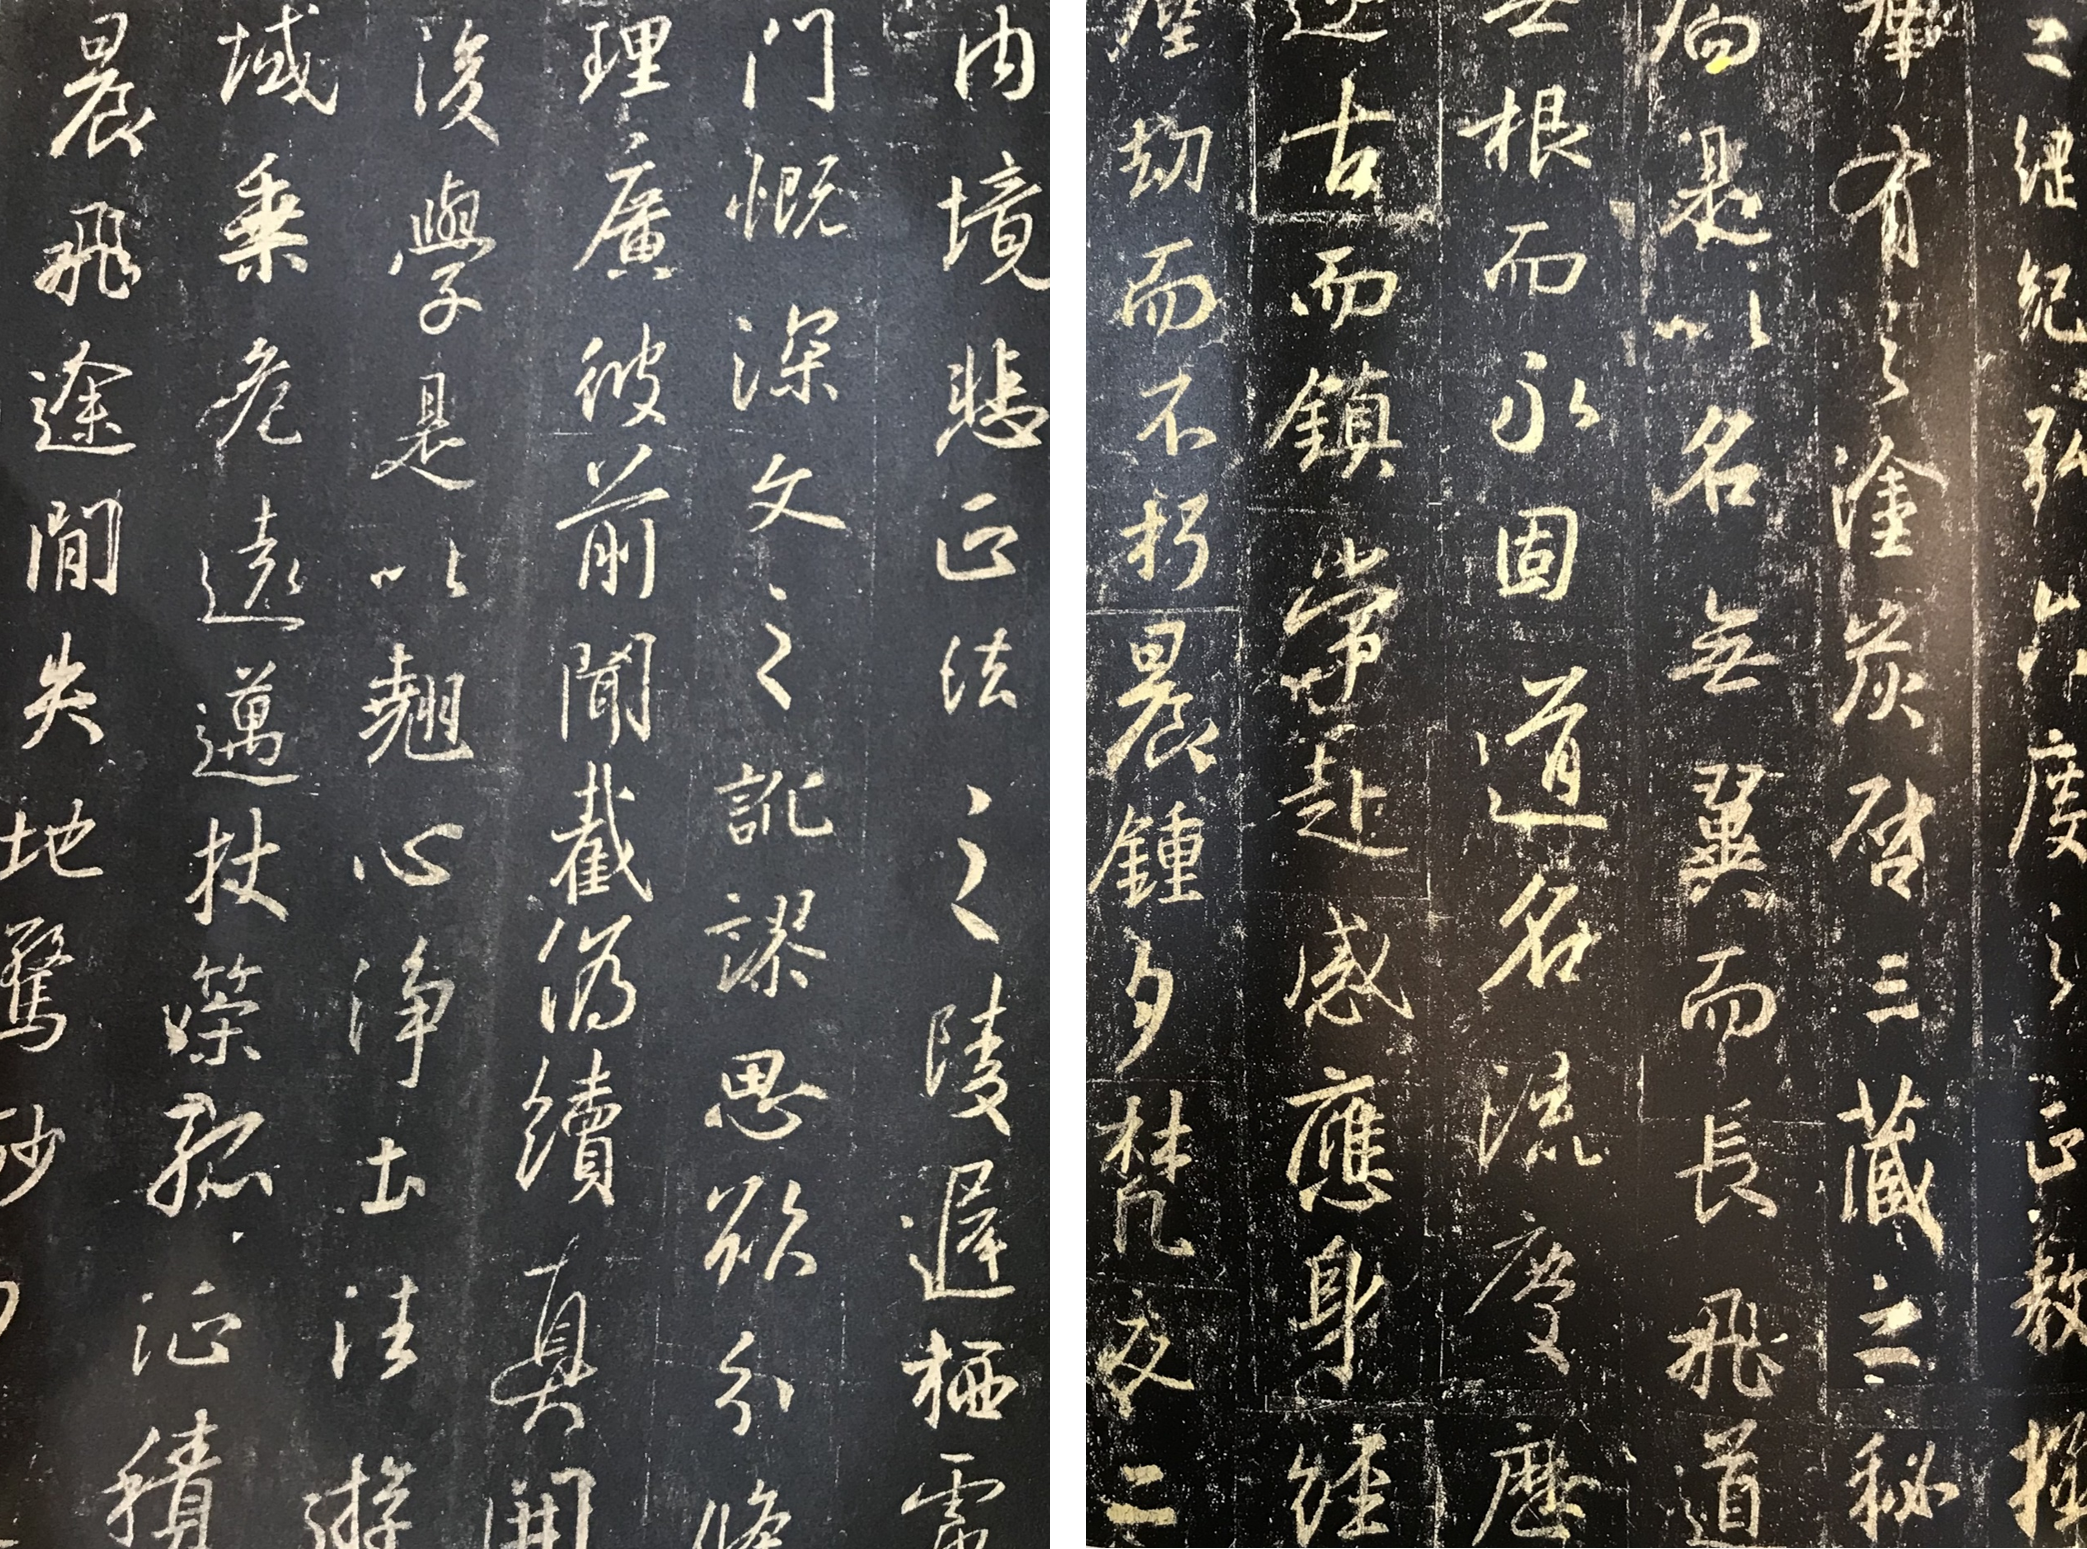 內境悲正法之陵遲栖慮
門慨深文之訛謬思欲分條
理廣彼前聞截偽續真開
後學是以翹心淨土法遊
域乘危遠邁杖策孤征積
晨飛途閒失地驚砂夕
之綱紀弘六度之正教拯
群有之塗炭啓三藏之秘
扃是以名無翼而長飛道
無根而永固道名流慶歷
遂古而鎮常赴感應身經
塵劫而不朽晨鍾夕梵交二